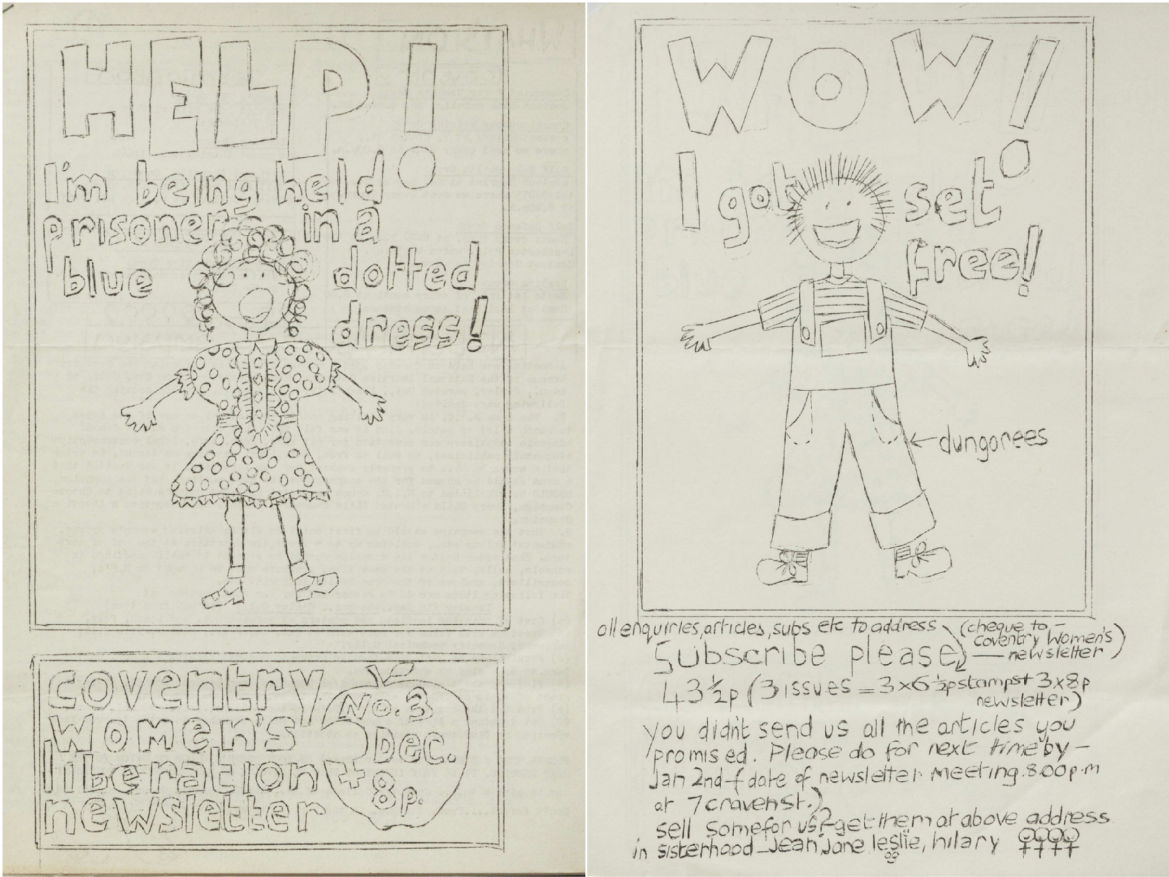 HELP!
I'm being held
prisoner in a
blue dotted
dress!
coventry
women's
liberation
newsletter
No. 3
Dec.
8p.
WOW!
I got set
free!
dungarees
all enquiries, articles, subs etc to address
Subscribe please
(cheque to –
coventry women's
newsletter)
43½p (3 issues = 3x6½p stamps + 3x8p
newsletter)
you didn't send us all the articles you
promised. Please do for next time by –
Jan 2nd – (date of newsletter meeting. 8.00p.m
at 7 craven st.)
sell some for us? get them at above address
in sisterhood – Jean, Jane, leslie, hilary